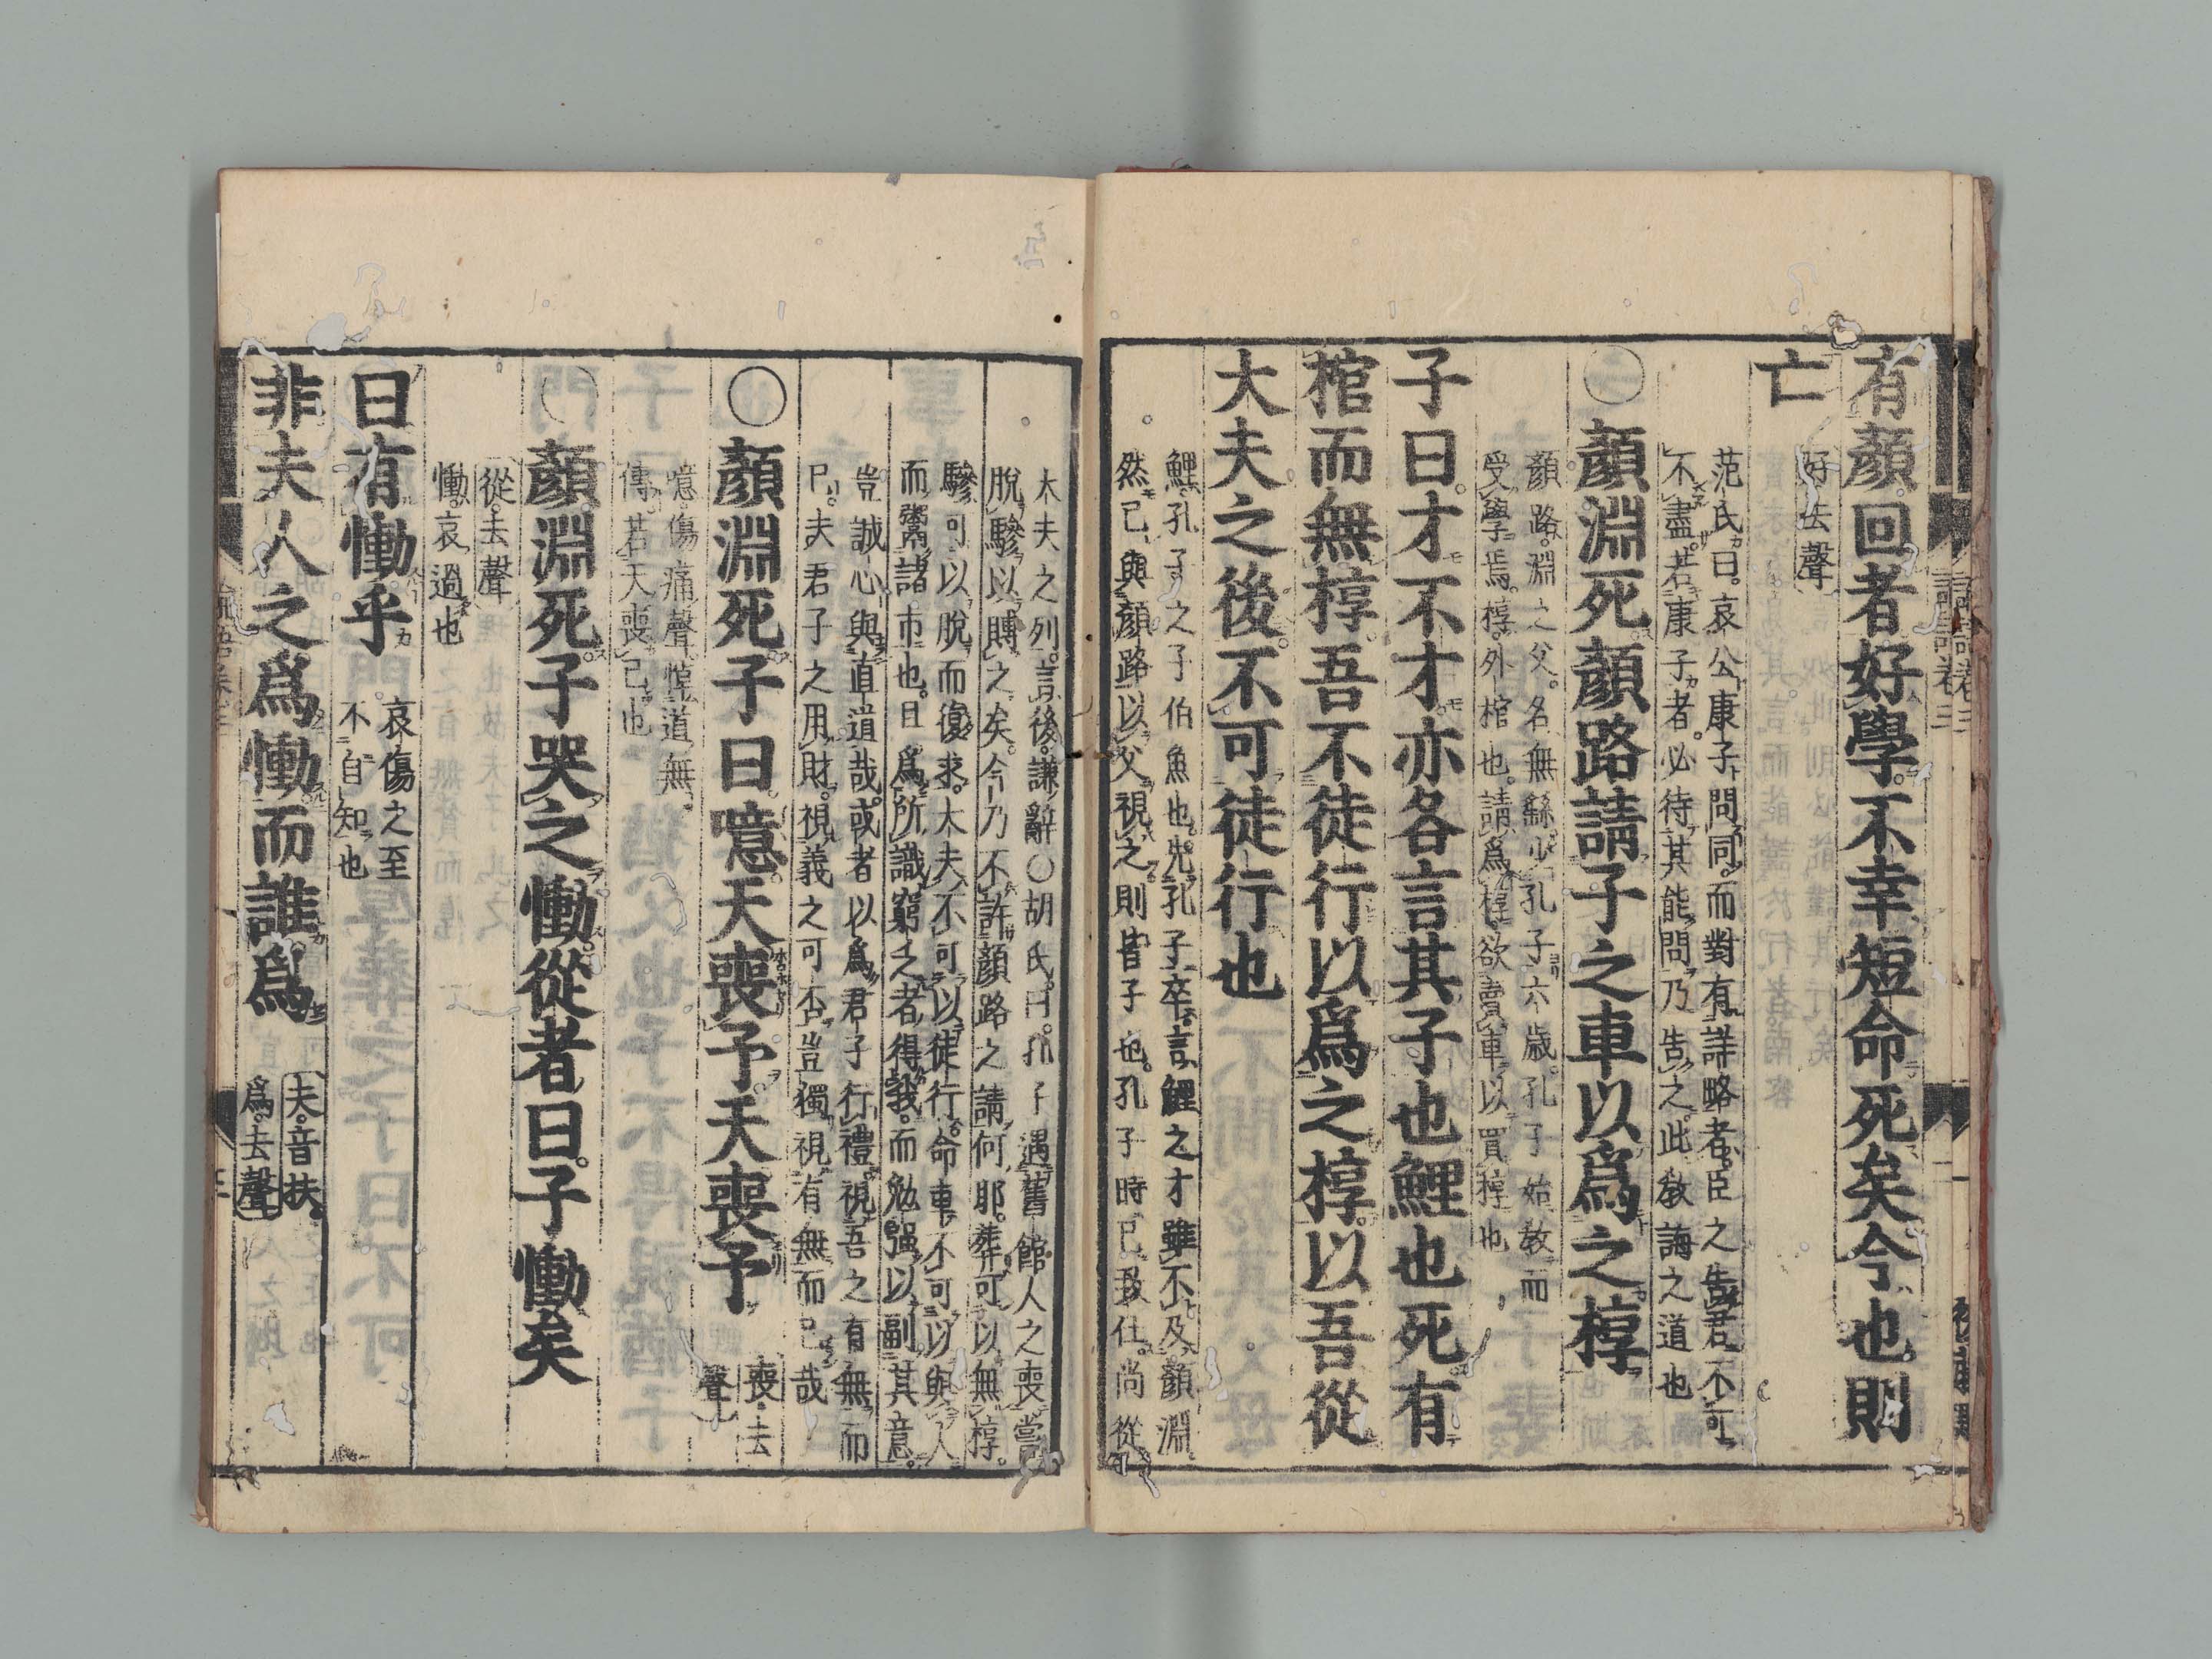 有顏回者好學不幸短命死矣今也則
亡
好去聲
范氏曰哀公康子問同而對有詳略者臣之告君不可
不盡若康子者必待其能問乃告之此教誨之道也
○顏淵死顏路請子之車以爲之椁
顏路淵之父名無繇少孔子六歲孔子始教而
受學焉椁外棺也請爲椁欲賣車以買椁也
子曰才不才亦各言其子也鯉也死有
棺而無椁吾不徒行以爲之椁以吾從
大夫之後不可徒行也
鯉孔子之子伯魚也先孔子卒言鯉之才雖不及顏淵
然已與顏路以父視之則皆子也孔子時已致仕尚從
大夫之列言後謙辭○胡氏曰孔子遇舊館人之喪嘗
脫驂以賻之矣今乃不許顏路之請何耶葬可以無椁
驂可以脫而復求大夫不可以徒行命車不可以與人
而鬻諸市也且爲所識窮乏者得我而勉強以副其意
豈誠心與直道哉或者以爲君子行禮視吾之有無而
已夫君子之用財視義之可否豈獨視有無而已哉
○顏淵死子曰噫天喪予天喪予
喪去
聲
噫傷痛聲悼道無
傳若天喪己也
○顏淵死子哭之慟從者曰子慟矣
從去聲
慟哀過也
曰有慟乎
哀傷之至
不自知也
非夫人之爲慟而誰爲
夫音扶
爲去聲